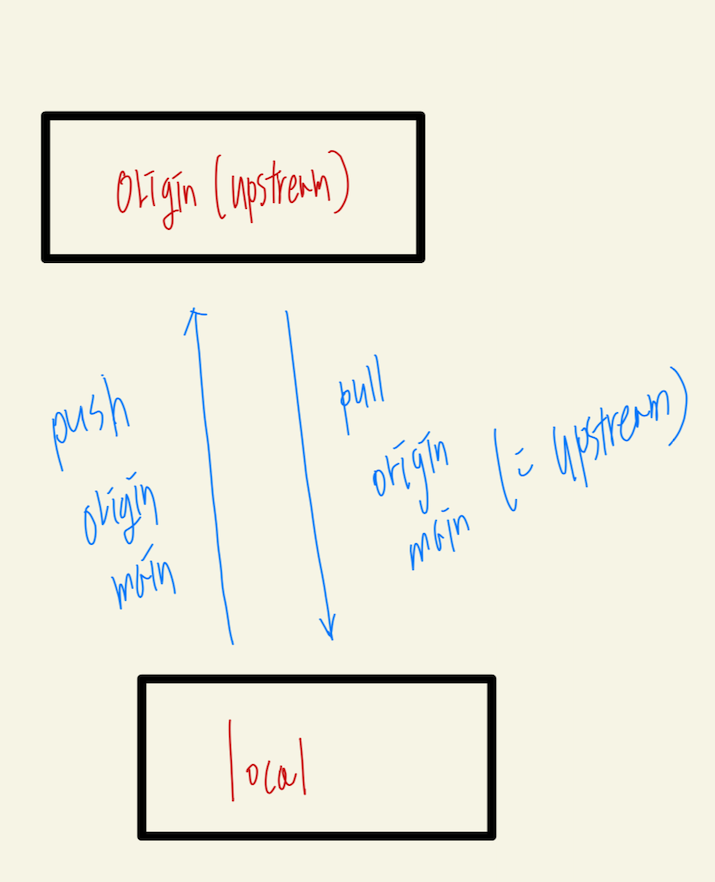 origin (upstream)
push
origin
main
pull
origin
main
(= upstream)
local